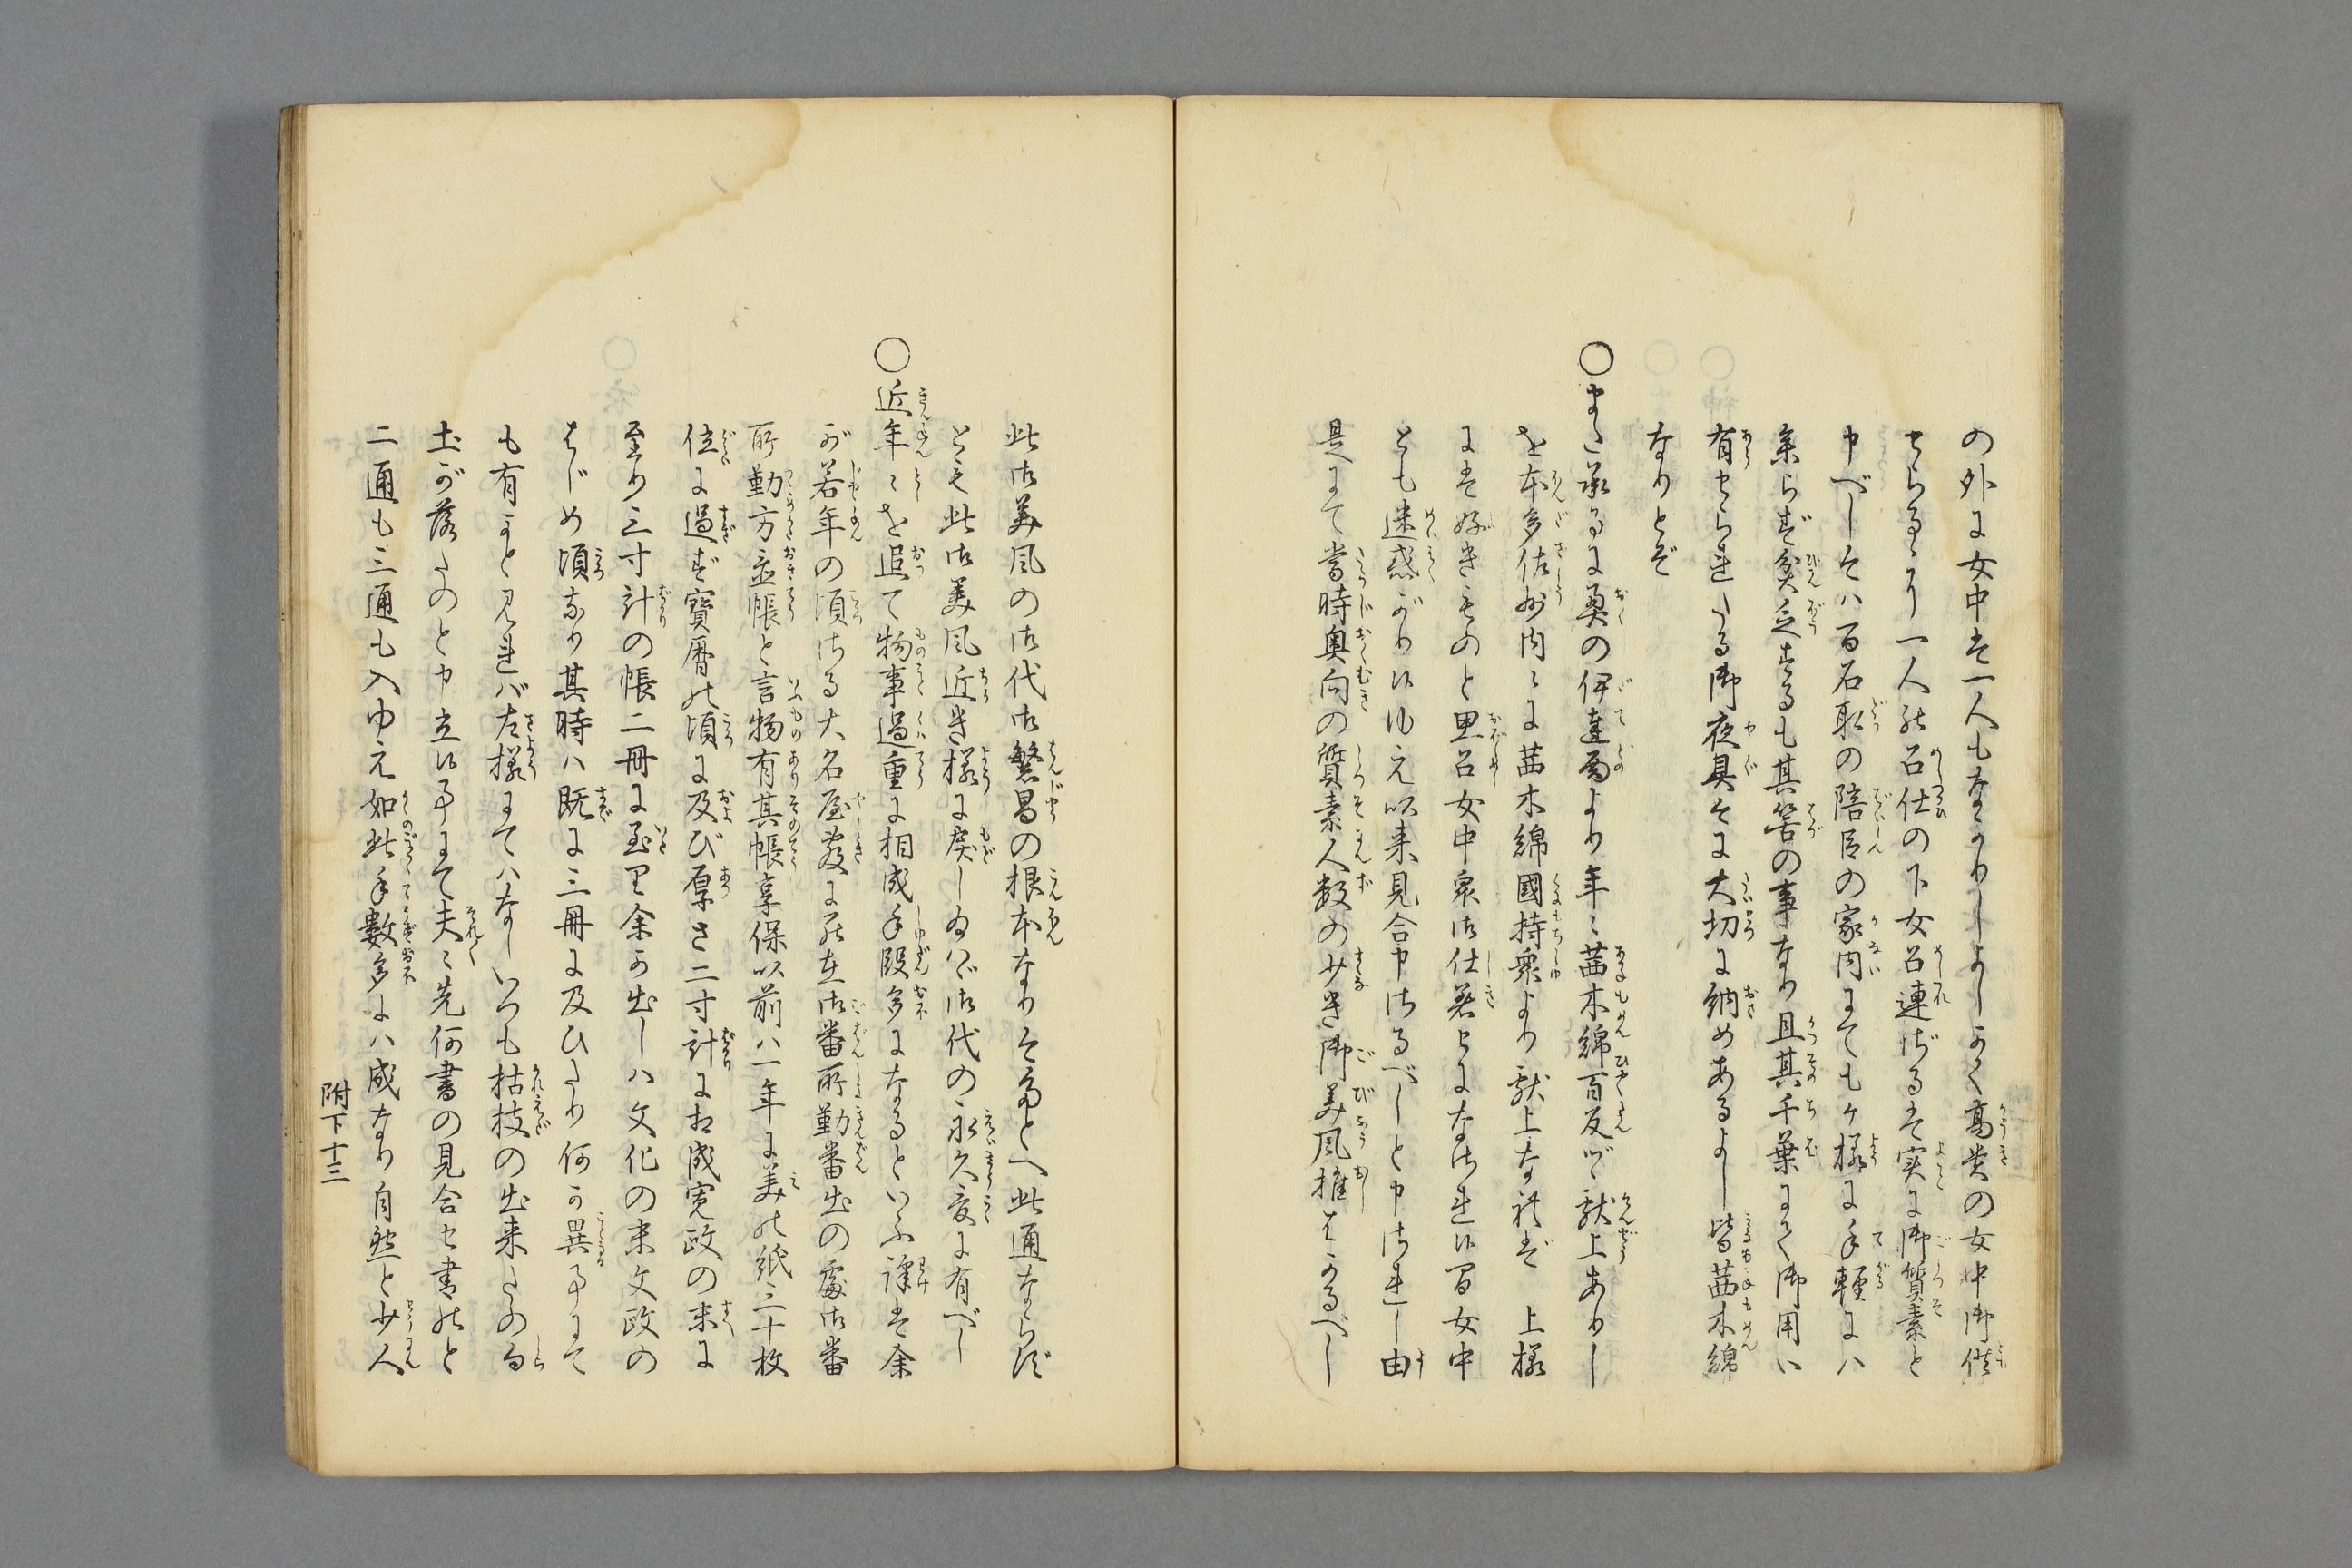 の外に女中は一人もなかりしよしかく高貴の女中御供
せらるゝに一人の召仕の下女召連ざるは実に御質素と
申べし今は百石取の陪臣の家内にてもケ様に手軽には
参らず貧乏するも其筈の事なり且其千葉にて御用い
有せられたる御夜具今に大切に納めあるよし皆茜木綿
なりとぞ
○また承るに奥の伊達局より年々茜木綿百反づゝ献上ありし
を本多佐州内々に茜木綿國持衆より献上なれば 上様
には好きものと思召女中衆御仕着とになされ候間女中
とも迷惑がり候ゆえ以来見合申さるべしと申されし由
是にて當時奥向の質素人数の少き御美風推はかるべし
此御美風の御代御繁昌の根本なり今たとへ此通ならず
とも此御美風近き様に戻しなば御代の永久爰に有べし
○近年々を追て物事過重に相成手段多になるといふ譯は余
が若年の頃さる大名屋敷に於て御番所勤番出の處御番
所勤方並帳と言物有其帳享保以前は一年に美の紙三十枚
位に過ず寶暦の頃に及び厚さ二寸計に相成寛政の末に
至り三寸計の帳二冊に至里余が出しは文化の末文政の
はじめ頃なり其時は既に三冊に及ひたり何か異事にて
も有かと見ればさ様にてはなしいつも枯枝の出来たの白
土が落たのと申立候事にて夫々先何書の見合せ書のと
二通も三通も入ゆえ如此手數多には成なり自然と少人
附下十三